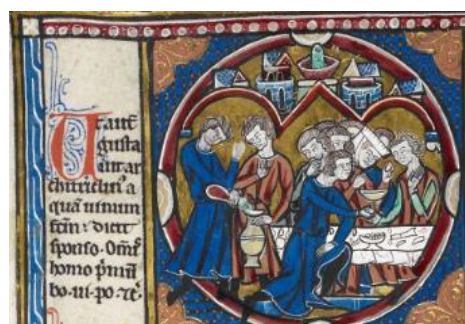 Ut autē
gusta
uit ar
chitriclin' a
quā uinum
fc̄m . dicit
sponso . Om̄s
homo p̄mū
bo . ui . po . ⁊c̄